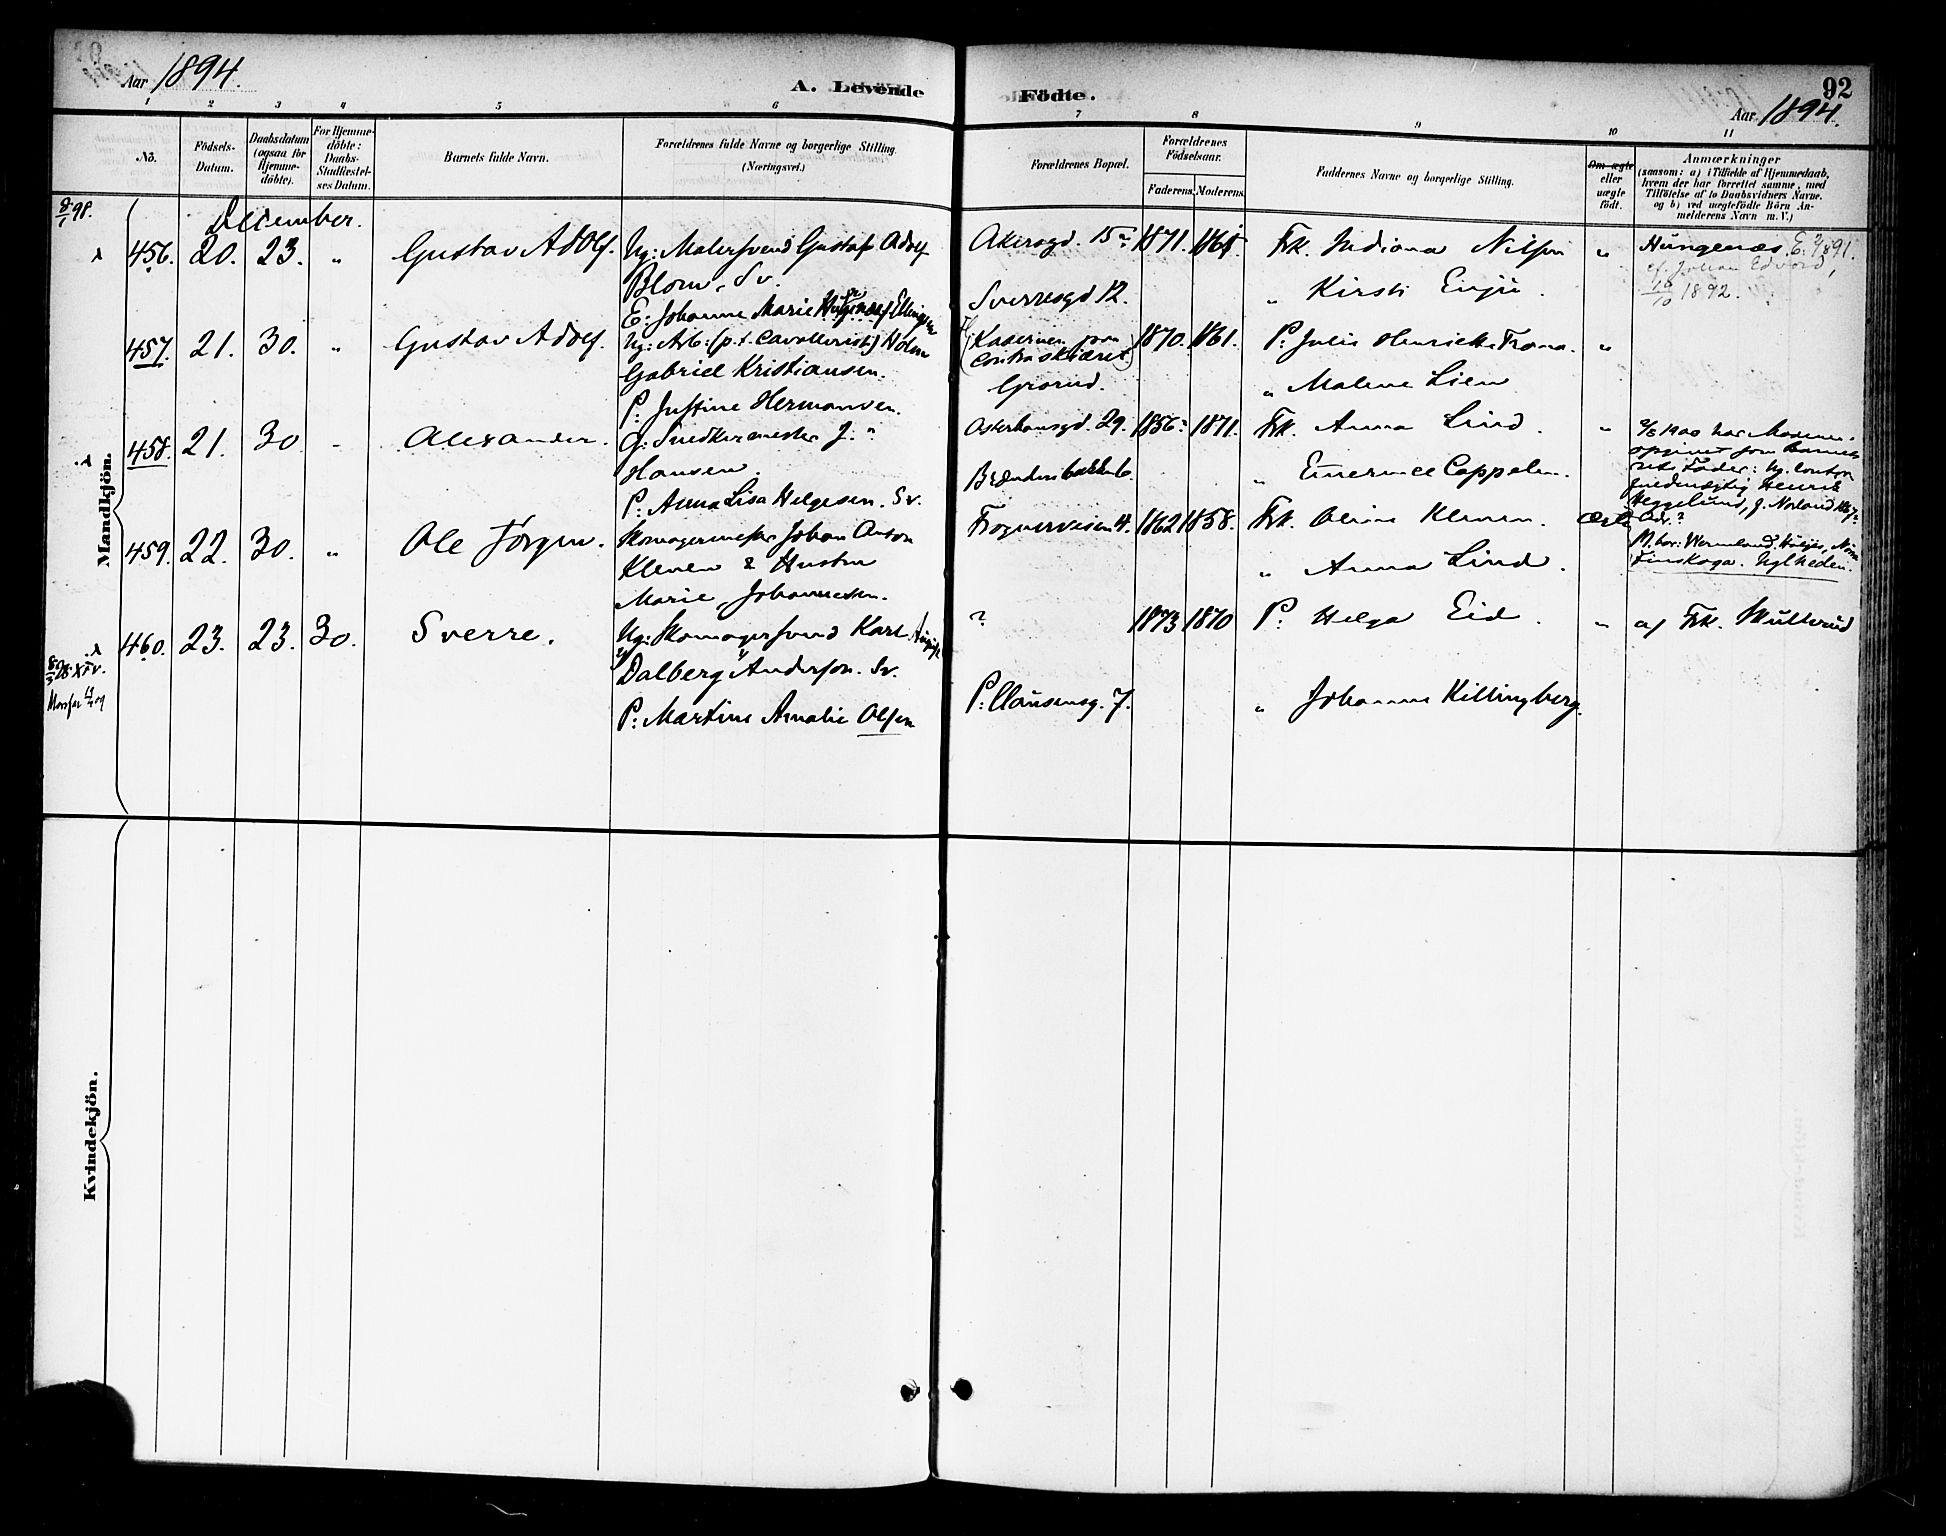 Aar 1894.
A. Levende Födte.
92
Aar 1894.
1 2 3 4 5 6 7 8 9 10 11
No.
Födsels-Datum.
Daabsdatum (ogsaa for Hjemme-döbte).
For Hjemme-döbte: Daabs-Stadfæstel-ses Datum.
Barnets fulde Navn.
Forældrenes fulde Navne og borgerlige Stilling. (Næringsvei.)
Forældrenes Bopæl.
Forældrenes Födselsaar.
Faderens. Moderens.
Faddernes Navne og borgerlige Stilling.
Om ægte eller uægte födt.
Anmærkninger
(saasom: a) i Tilfælde af Hjemmedaab,
hvem der har forrettet samme, med
Tilföielse af to Daabsvidners Navne.
og b) ved uægtefödte Börn An-
melderens Navn m. V.)
8/1 98.
December.
Mandkjön.
456. 20. 23. " Gustav Adolf. Ug: Malersvend Gustaf Adolf
Blom, Sv.
E: Johanne Marie Ellingsen
Akersgd. 15
Sverresgd 12.
1871. Frk. Indiana Nilsen
" Kirsti
" Hungenæs. E.
cf. Johan Edvard,
1892.
457. 21. 30. " Gustav Adolf. Ug: Arb: (p.t. Cavallerist) Holm
Gabriel Kristiansen.
P: Justine Hermansen.
(Kasernen paa Contraskjæret)
Grorud.
1870. 1861. P: Julie Henriette
" Malene Lien
"
458. 21. 30 " Alexander. Snedkermester J.
Hansen.
P: Anna Lisa Helgesen. Sv.
Akershusgd. 29.
1856? 1871. Frk. Anna Lind.
" Cappelen.
" 1900 har Moderen
opgivet som Barnets
Fader: Ug.
Henrik
Heggelund,
Adr?
M. bor: Wermland,
Finskoga.
459. 22. 30. " Ole Jörgen. Skomagermester Johan Anton
Kleven & Hustru
Marie Johannesen.
Frognerveien 4. 1862 1858. Frk. Oline Kleven.
" Anna Lind.
Ægte
460. 23. 23. 30. Sverre. Ug: Skomagersvend Karl August
Dalberg Anderson. Sv.
P: Martine Amalie Olsen
?
P: Clausensg. 7.
1873 1870 P: Helga Eid.
" Johanne Killingberg.
" af Frk. Skutterud
Kvindekjön.